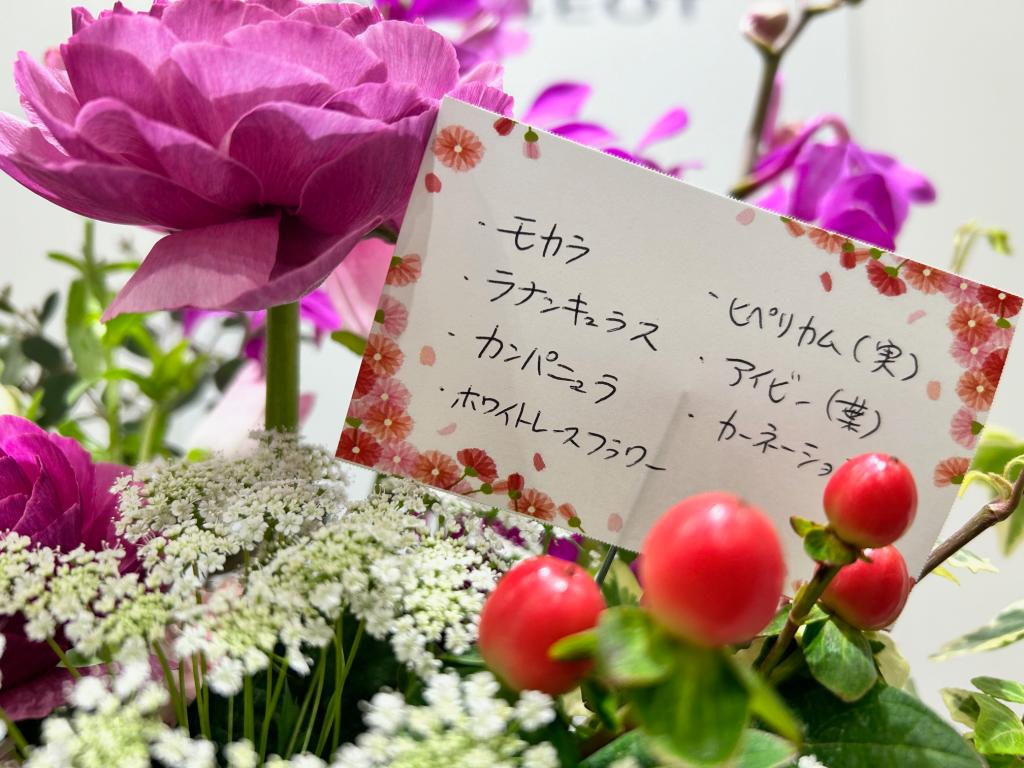 ・モカラ
・ラナンキュラス
・カンパニュラ
・ホワイトレースフラワー
・ヒペリカム(実)
・アイビー(葉)
・カーネーショ